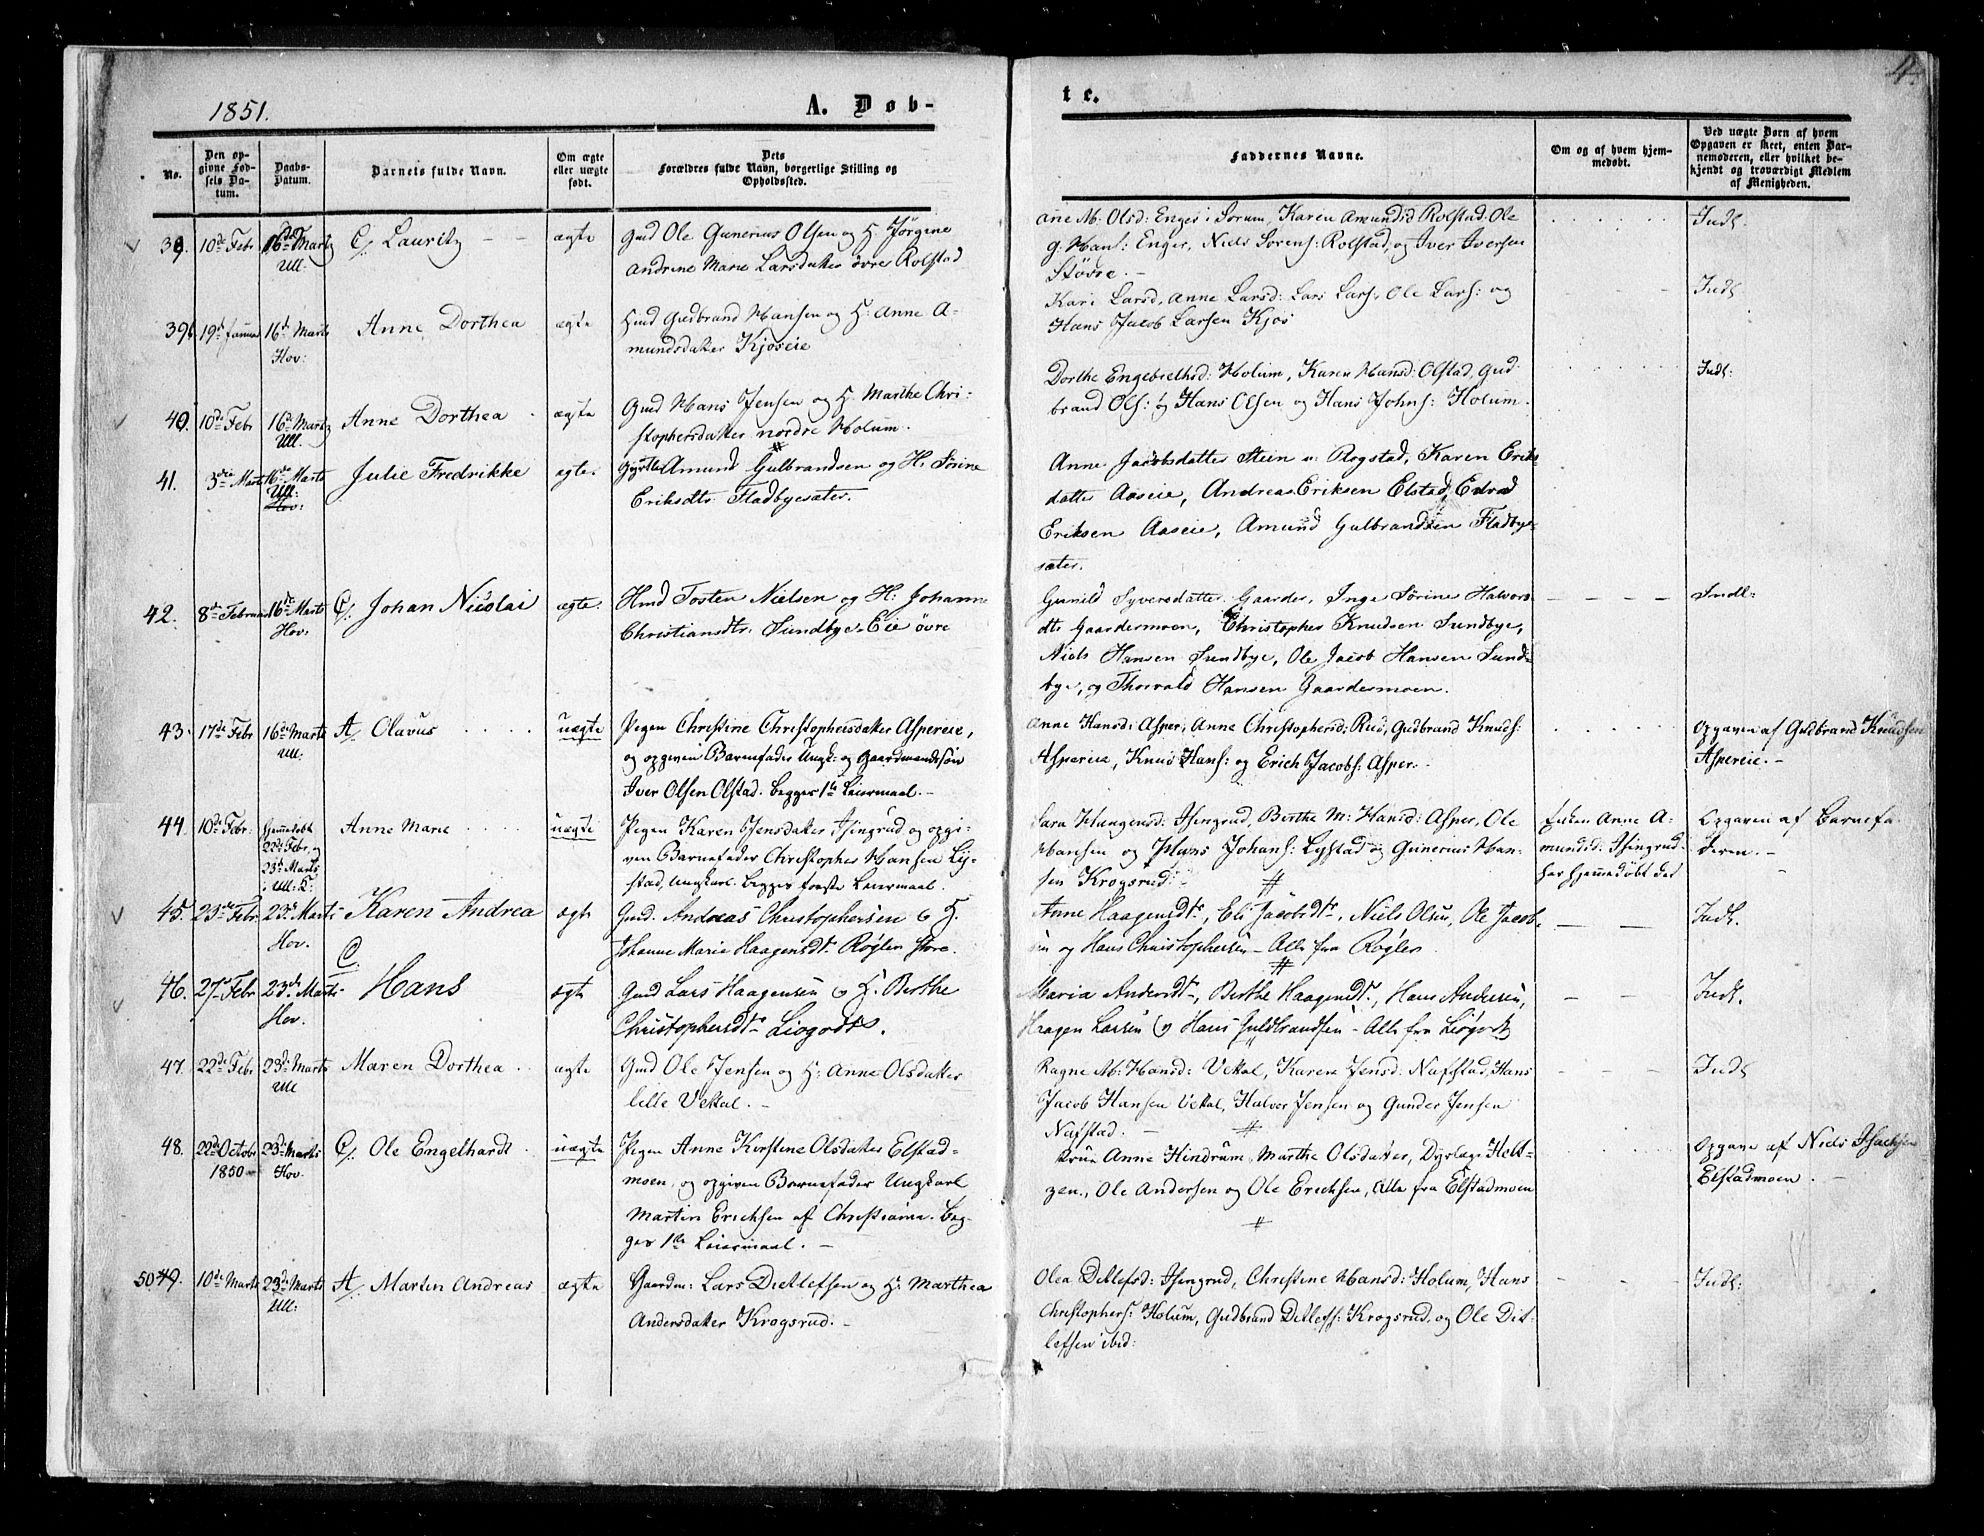 4.
1851.
A. Døb-
te.
No.
Den op-
givne Fød-
sels Da-
tum.
Daabs-
Datum.
Barnets fulde Navn.
Om ægte
eller uægte
født.
Dets
Forældres fulde Navn, borgerlige Stilling og
Opholdssted.
Faddernes Navne.
Om og af hvem hjem-
medøbt.
Ved uægte Børn af hvem
Opgaven er skeet, enten Bar-
nemoderen, eller hvilket be-
kjendt og troværdigt Medlem
af Menigheden.
39. 10de Febr 16de Marts C/. Lauritz - - ægte Gmd Ole Gunerius Olsen og H. Jørgine
Ull. Andrine Marie Larsdatter øvre Rolstad
Ane M. Olsd: Enges i Sørum, Karen Amundsd Rolstad, Ole
G. Hans: Enger, Niels Sørens: Rolstad, og Iver Iversen
Støvre. -
Indl.
39b 19de Januar 16de Marts Anne Dorthea ægte Hmd Gudbrand Hansen og H: Anne A-
Hov: mundsdatter Kjoseie
Kari Larsd, Anne Larsd: Lars Lars:, Ole Lars: og
Hans Jacob Larsen Kjos
Indl
40. 10de Febr 16de Marts Anne Dorthea . ægte Gmd Hans Jensen og H. Marthe Chri-
Ull. stophersdatter nordre Holum.
Dorthe Engebrethsd: Holum, Karen Hansd: Olstad, Gud-
brand Ols: og Hans Olsen og Hans Johns: Holum.
Indl:
41. 3die Marts 16de Marts Julie Fredrikke ægte. Amund Gulbrandsen og H. Sørine
Ull:
Hov: Eriksdtr. Fladbyesæter.
Anne Jacobsdatter Stein u. Rogstad, Karen Eriks-
datter Aaseie, Andreas Eriksen Elstad,
Eriksen Aaseie, Amund Gulbrandsen Fladbye-
sæter.
42. 8de Februar 16de Marts C/. Johan Nicolai ægte. Hmd Tosten Nielsen og H: Johanne
Hov: Christiansdtr. Sundbye-Eie øvre
Gunild Syversdatter Gaarder, Inge Sørine Halvors-
dtr Gaardermoen, Christopher Knudsen Sundbye,
Niels Hansen Sundbye, Ole Jacob Hansen Sund-
bye, og Thorvald Hansen Gaardermoen.
Indl:
43. 17de Febr 16de Marts A/. Olavus uægte Pigen Christine Christophersdatter Aspereie,
Ull. og opgiven Barnefader Ungk: og Gaardmandssøn
Iver Olsen Olstad. begges 1te Leiermaal. -
Anne Hansd: Asper, Anne Christophersd: Rud, Gudbrand Knuds:
Aspereie, Knud Hans: og Erich Jacobs: Asper. -
Opgaven af Guldbrand Knudsen
Aspereie. -
44. 10de Febr. Hjemmedøbt Anne Marie uægte Pigen Karen Jensdatter Isingrud og opgi-
22de Febr, og ven Barnefader Christopher Hansen Ly-
23de Marts stad, Ungkarl. begges første Leiermaal.
i Ull: K:
Sara Haagensd: Isingrud, Berthe M: Hansd: Asper, Ole
Hansen og Hans Johans: Lystad og Gunerius Han-
sen Krogsrud.
Enken Anne A-
mundsd: Isingrud
har hjemmedøbt det
Opgaven af Barnefa-
deren. -
45. 23de Febr. 23de Marts Karen Andrea ægte Gmd. Andreas Christophersen & H.
Hov. Johanne Marie Haagensdtr Røgler store.
Anne Haagensdtr, Eli Jacobsdtr, Niels Olsen, Ole Jacob-
sen og Hans Christophersen - Alle fra Røgler
Indl.
46. 27de Febr 23de Marts C. Hans ægte Gmd Lars Haagensen & H. Berthe
Hov. Christophersdtr Liogodt.
Maria Andersdtr, Berthe Haagensdtr, Hans Andersen,
Haagen Larsen & Hans Guldbrandsen - Alle fra Liogodt
Indl.
47. 22de Febr 23de Marts Maren Dorthea . ægte Gmd Ole Jensen og H: Anne Olsdatter
Ull lille Vestal. -
Ragne M: Hansd: Vestal, Karen Jensd: Nafstad, Hans
Jacob Hansen Vestal, Halvor Jensen og Gunder Jensen
Nafstad. -
Indl
48. 22de Octobr 23de Marts C/. Ole Engelhardt . uægte Pigen Anne Kirstine Olsdatter Elstad-
1850 Hov. moen, og opgiven Barnefader Ungkarl
Martin Erichsen af Christiania. beg-
ges 1te Leiermaal. -
Anne Hindrum, Marthe Olsdatter, Dyrlæge Holt-
zen., Ole Andersen og Ole Erichsen, Alle fra Elstadmoen
Opgave af Niels Isachsen
Elstadmoen . -
50 49. 10de Marts 23de Marts A/. Martin Andreas ægte Gaardm: Lars Ditlefsen og H. Marthea
Ull: Andersdatter Krogsrud. -
Olea Ditlefsd: Isingrud, Christine Hansd: Holum, Hans
Christophers: Holum, Gudbrand Ditlefs: Krogsrud, og Ole Dit-
lefsen ibid:
Indl: